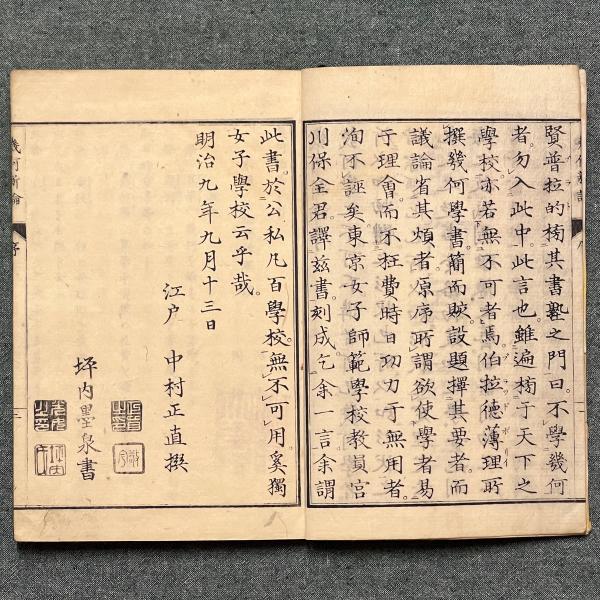 賢普拉的榜其書塾之門曰。不學幾何
者。勿入此中。此言也。雖遍榜于天下之
學校亦若無不可者焉。伯拉德薄理所
撰幾何學書。簡而賅。設題擇其要者。而
議論省其煩者。原序所謂欲使學者易
于理會。而不枉費時日功力于無用者。
洵不誣矣。東京女子師範學校教員宮
川保全君。譯茲書。刻成。乞余一言。余謂
此書。於公私凡百學校。無不可用。奚獨
女子學校云乎哉。
明治九年九月十三日
江戸 中村正直撰
坪内墨泉書
序